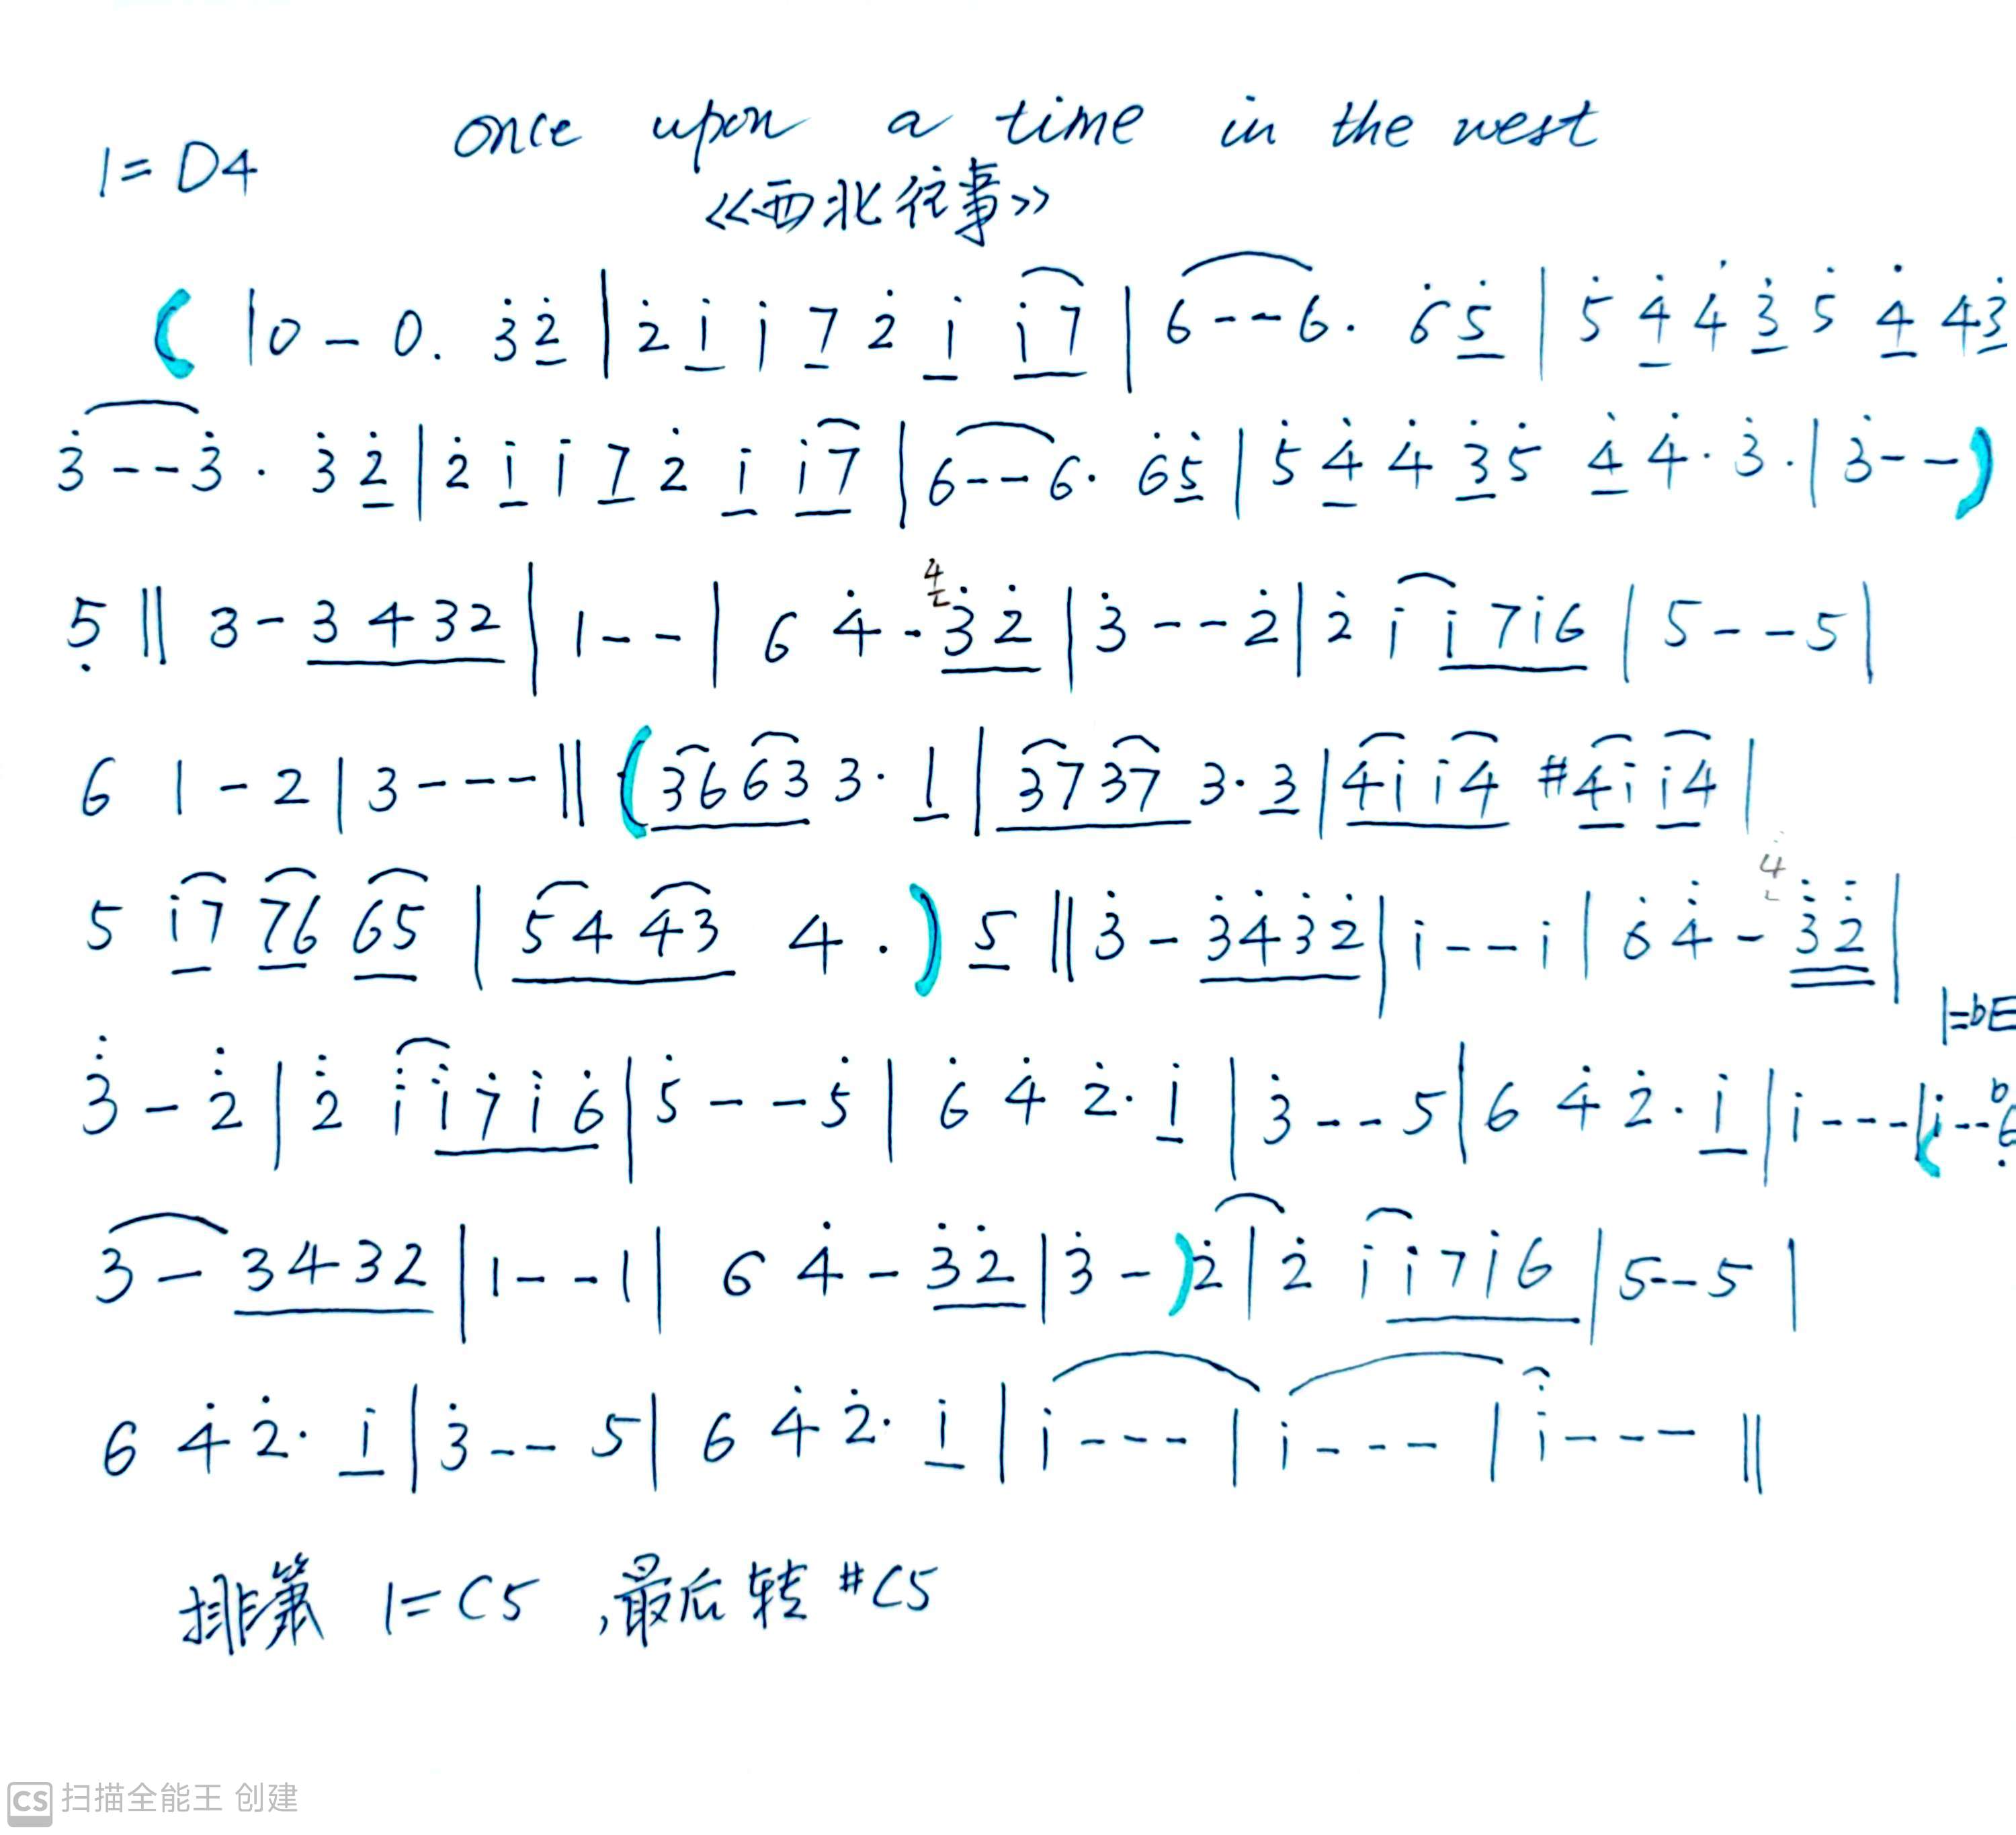 once upon a time in the west
1= D4
《西北往事》
( |0 – 0. 3̇ 2̇ | 2̇ i i 7 2̇ i i 7 | 6 - - 6 · 6̇ 5̇ | 5̇ 4̇ 4̇ 3̇ 5̇ 4̇ 4 3̇
3̇ - - 3̇ · 3̇ 2̇ | 2̇ i i 7 2̇ i i 7 | 6 - - 6 · 6̇ 5̇ | 5̇ 4̇ 4̇ 3̇ 5̇ 4̇ 4̇ · 3̇ · | 3̇ - - )
4
5̣ || 3 - 3 4 3 2 | 1 - - | 6 4̇ - 3̇ 2̇ | 3̇ - - 2̇ | 2̇ i i 7 i 6 | 5 - - 5 |
6 1 - 2 | 3 - - - || ( 3 6 6 3 3 · 1 | 3 7 3 7 3 · 3 | 4 i i 4 #4 i i 4 |
4̇
5 i 7 7 6 6 5 | 5 4 4 3 4 · ) 5 || 3̇ - 3̇ 4̇ 3̇ 2̇ | i - - i | 6̇ 4̈ - 3̈ 2̈ |
1=bE
3̈ - 2̈ | 2̈ ï ï 7̇ i 6̇ | 5̇ - - 5̇ | 6̇ 4̇ 2̇ · i | 3̇ - - 5 | 6 4̇ 2̇ · i | i - - - | ( i - - b6̣
3 - 3 4 3 2 | 1 - - 1 | 6 4̇ - 3̇ 2̇ | 3̇ - ) 2̇ | 2̇ i i 7 i 6 | 5 - - 5 |
6 4̇ 2̇ · i | 3̇ - - 5 | 6 4̇ 2̇ · i | i - - - | i - - - | i - - - ||
排箫 1= C5 , 最后转 #C5
CS 扫描全能王 创建